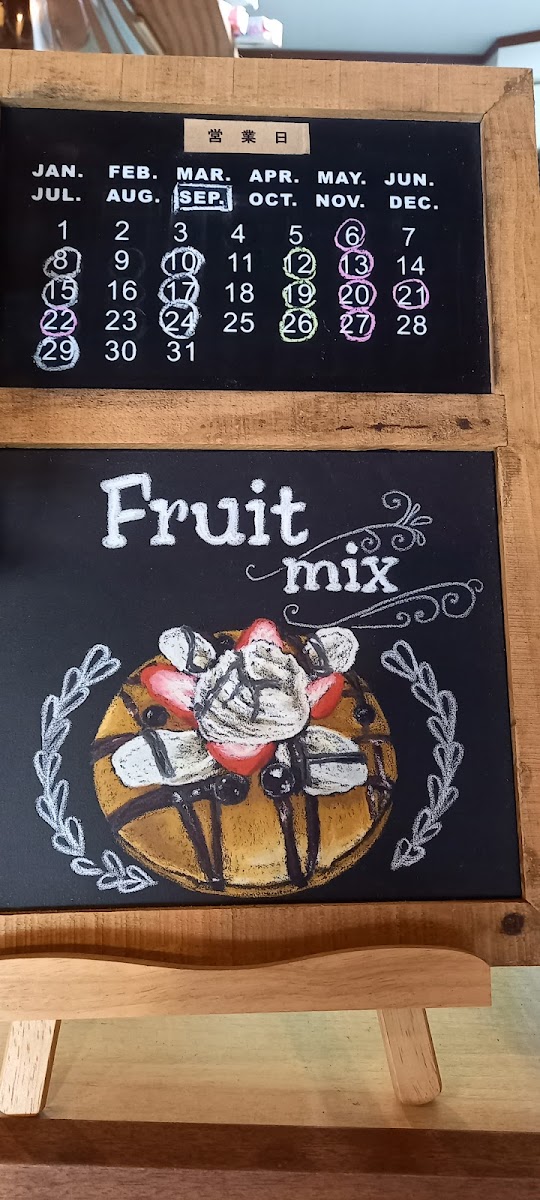 営業日
JAN. FEB. MAR. APR. MAY. JUN.
JUL. AUG. SEP. OCT. NOV. DEC.
1 2 3 4 5 6 7
8 9 10 11 12 13 14
15 16 17 18 19 20 21
22 23 24 25 26 27 28
29 30 31
Fruit
mix